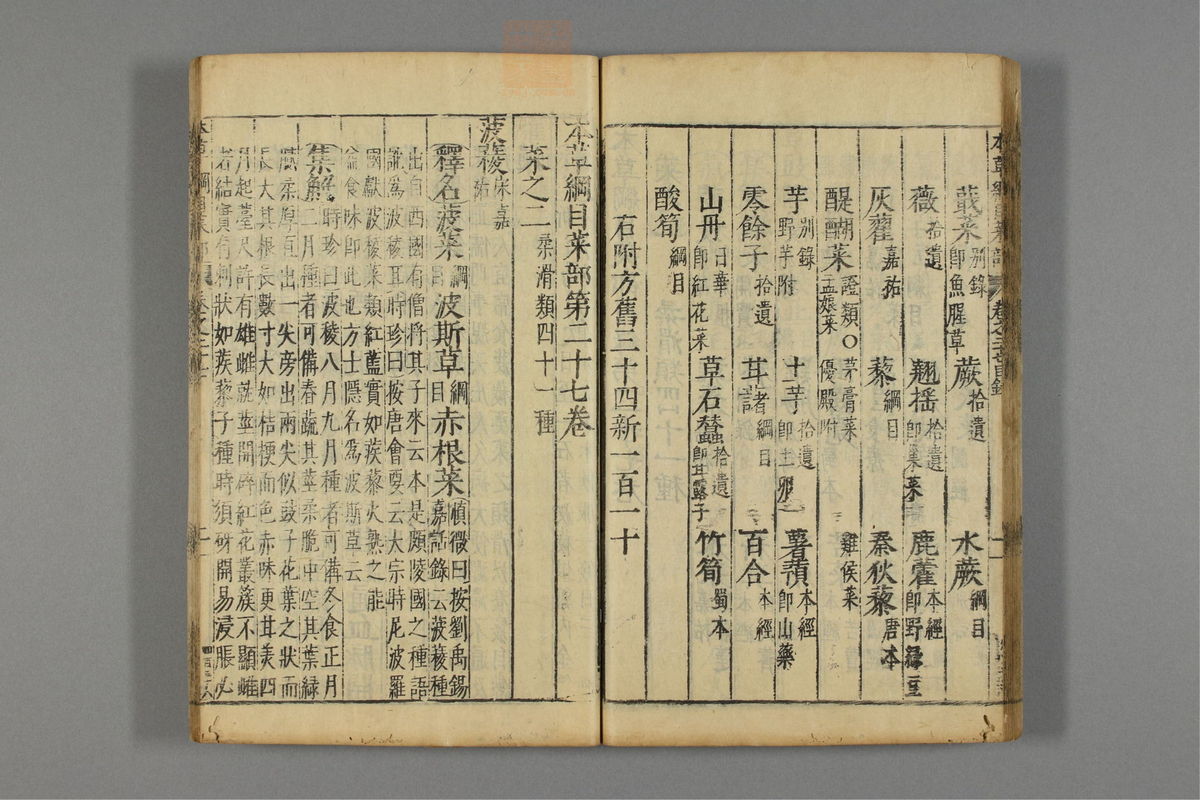 蕺菜別錄即魚腥草 蕨拾遺 水蕨綱目
薇拾遺 翹搖拾遺即巢菜 鹿藿本經即野綠豆
灰藋嘉祐 藜綱目 秦荻藜唐本
醍醐菜證類○茅膏菜 雞侯菜 孟娘菜 優殿附
芋別錄野芋附 土芋拾遺即土卵 薯蕷本經即山藥
零餘子拾遺 甘藷綱目 百合本經
山丹日華即紅花菜 草石蠶拾遺即甘露子 竹筍蜀本
酸筍綱目
右附方舊三十四新一百一十
本草綱目菜部第二十七卷
菜之二柔滑類四十一種
菠薐宋嘉祐
釋名菠菜綱目波斯草綱目赤根菜慎微曰按劉禹錫嘉話錄云菠薐種
出自西國有僧將其子來云本是頗陵國之種語
訛爲波稜耳時珍曰按唐會要云太宗時尼波羅
國獻波稜菜類紅藍實如蒺藜火熟之能
益食味即此也方士隱名爲波斯草云
集解時珍曰波稜八月九月種者可備冬食正月
二月種者可備春蔬其莖柔脆中空其葉綠
膩柔厚直出一尖旁出兩尖似鼓子花葉之狀而
長大其根長數寸大如桔梗而色赤味更甘美四
月起薹尺許有雄雌就莖開碎紅花叢簇不顯雌
者結實有刺狀如蒺藜子種時須砑開易浸脹必